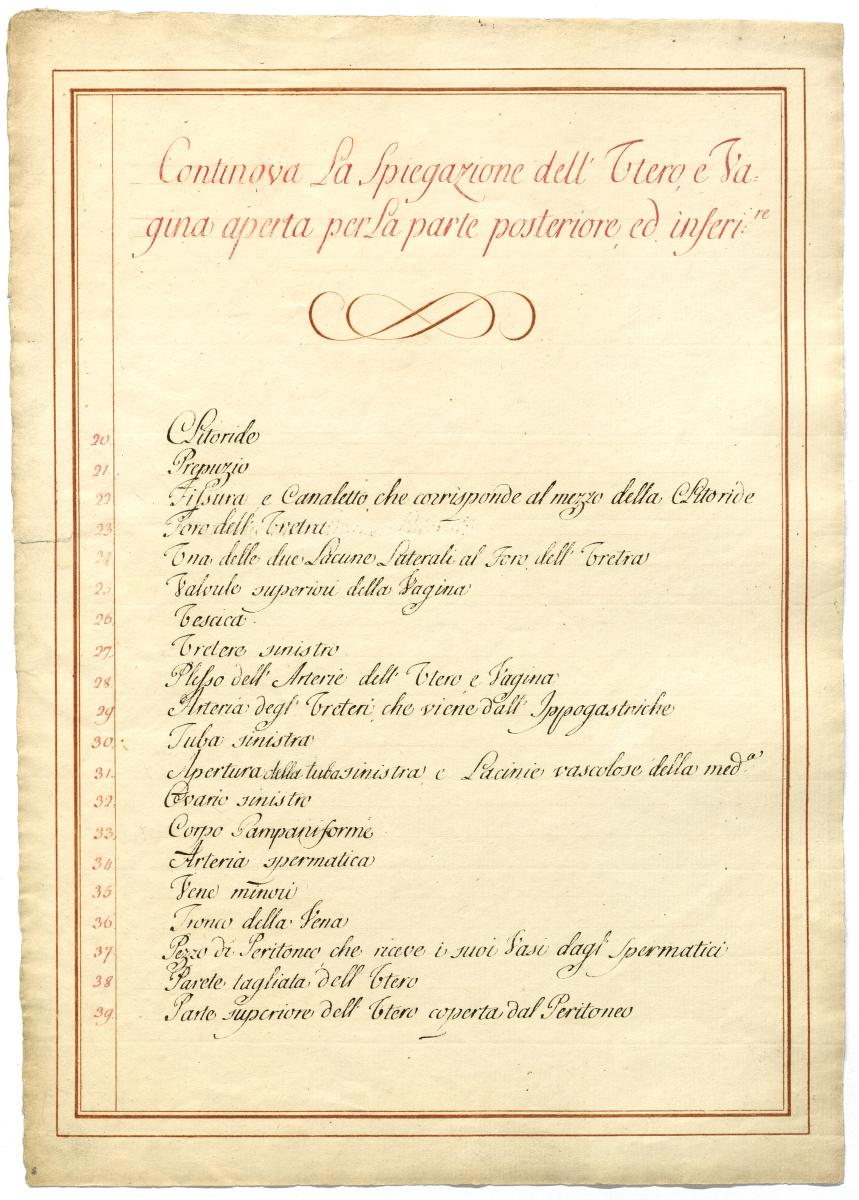 Continova La Spiegazione dell' Utero, e Va=
gina aperta per La parte posteriore, ed inferi:re
20. Clitoride
21. Prepuzio
22. Fissura e Canaletto, che corrisponde al mezzo della Clitoride
23. Foro dell' Uretra
24. Una delle due Lacune Laterali al Foro dell' Uretra
25. Valvule superiori della Vagina
26. Vescica
27. Uretere sinistro
28. Plesso dell' Arterie dell' Utero, e Vagina
29. Arteria degl' Ureteri, che viene dall' Ippogastriche
30. Tuba sinistra
31. Apertura della tuba sinistra, e Lacinie vascolose della med.a
32. Ovario sinistro
33. Corpo Pampiniforme
34. Arteria spermatica
35. Vene minori
36. Tronco della Vena
37. Pezzo di Peritoneo, che riceve i suoi Vasi dagl' Spermatici
38. Parete tagliata dell' Utero
39. Parte superiore dell' Utero coperta dal Peritoneo